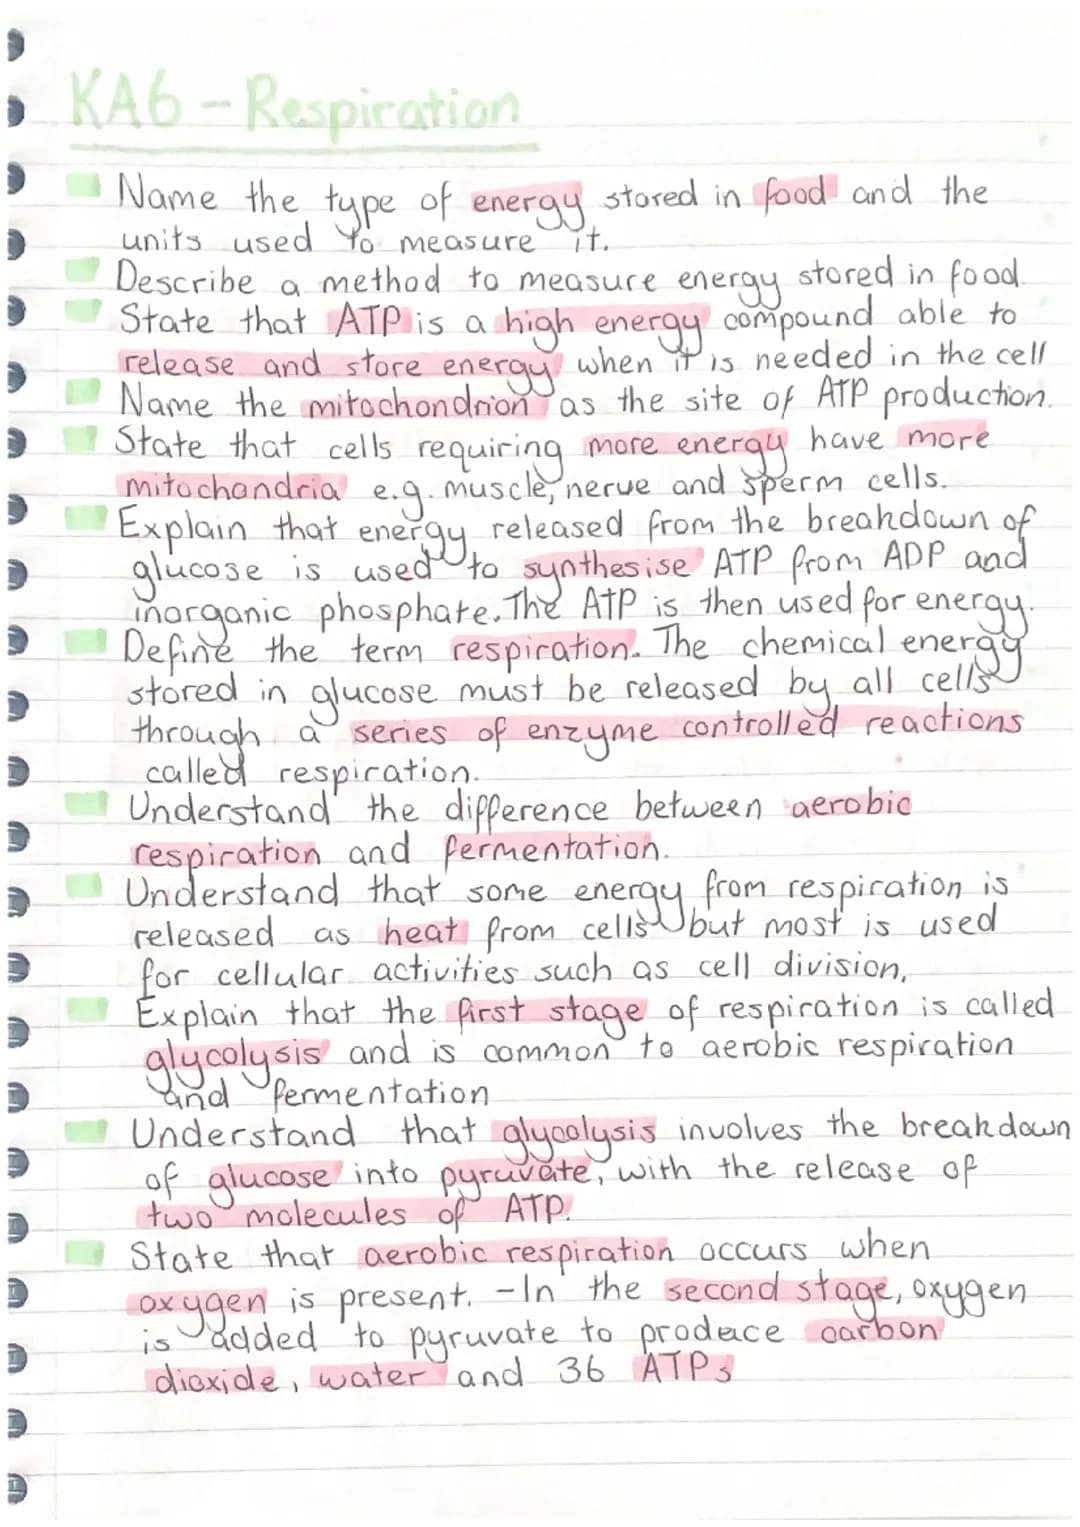 KA6 - Respiration
Name the type of energy stored in food and the
units used to measure it.
Describe a method to measure energy stored in food.
State that ATP is a high energy compound able to
release and store energy when it is needed in the cell
Name the mitochondrion as the site of ATP production.
State that cells requiring more energy have more
mitochondria e.g. muscle, nerve and sperm cells.
Explain that energy released from the breakdown of
glucose is used to synthesise ATP from ADP and
inorganic phosphate. The ATP is then used for energy.
Define the term respiration. The chemical energy
stored in glucose must be released by all cells
through a series of enzyme controlled reactions
called respiration.
Understand the difference between aerobic
respiration and fermentation.
Understand that some energy from respiration is
released as heat from cells but most is used
for cellular activities such as cell division,
Explain that the first stage of respiration is called
glycolysis and is common to aerobic respiration
and fermentation
Understand that glycolysis involves the breakdown
of glucose into pyruvate, with the release of
two molecules of ATP.
State that aerobic respiration occurs when
oxygen is present. - In the second stage, oxygen
is added to pyruvate to produce carbon
dioxide, water and 36 ATPs